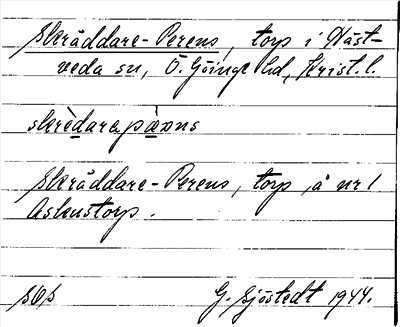 Skräddare-Perens, torp i Häst-
veda sn, Ö. Göinge hd, Krist. l.
skrèdarapæns
Skräddare-Perens, torp å nr 1
Askenstorp.
SOS
G. Sjöstedt 1944.